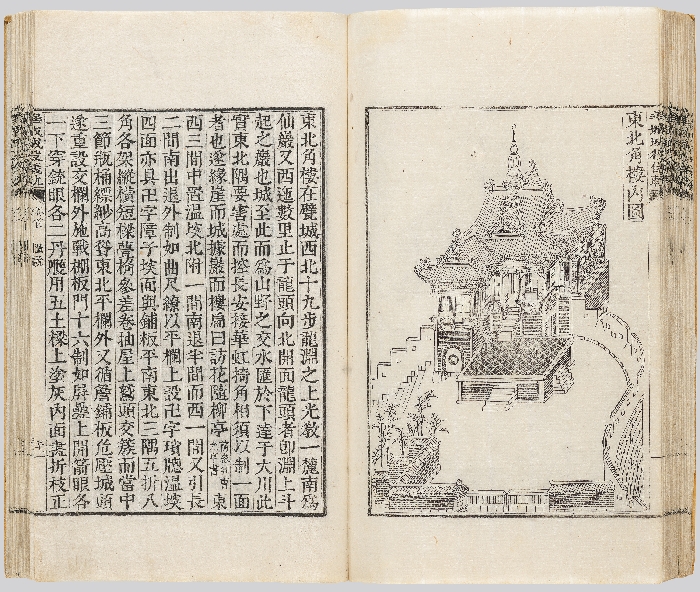 華城城役儀軌
東北角樓內圖
東北角樓在甓城西北十九步龍淵之上光教一麓南爲
仙巖又西迤數里止于龍頭向北開面龍頭者卽淵上斗
起之巖也城至此而爲山野之交水匯於下達于大川此
實東北隅要害處而控長安接華虹掎角相須以制一面
者也遂緣崖而城據巖而樓扁曰訪花隨柳亭東
西三間中置溫堗北附一間南退半間而西一間又引長
二間南出退外制如曲尺繚以平欄上設卍字瑣牕溫堗
四面亦具卍字障子堗面與鋪板平南東北三隅五折八
角各架縱橫短樑甍桷參差卷抽屋上鷲頭交簇而當中
三節甁桶縹緲高聳東北平欄外又循簷鋪板危壓城頭
遂重設交欄外施戰棚板門十六制如屛疊上開箭眼各
一下穿銃眼各二丹雘用五土樑上塗灰內面畫折枝正